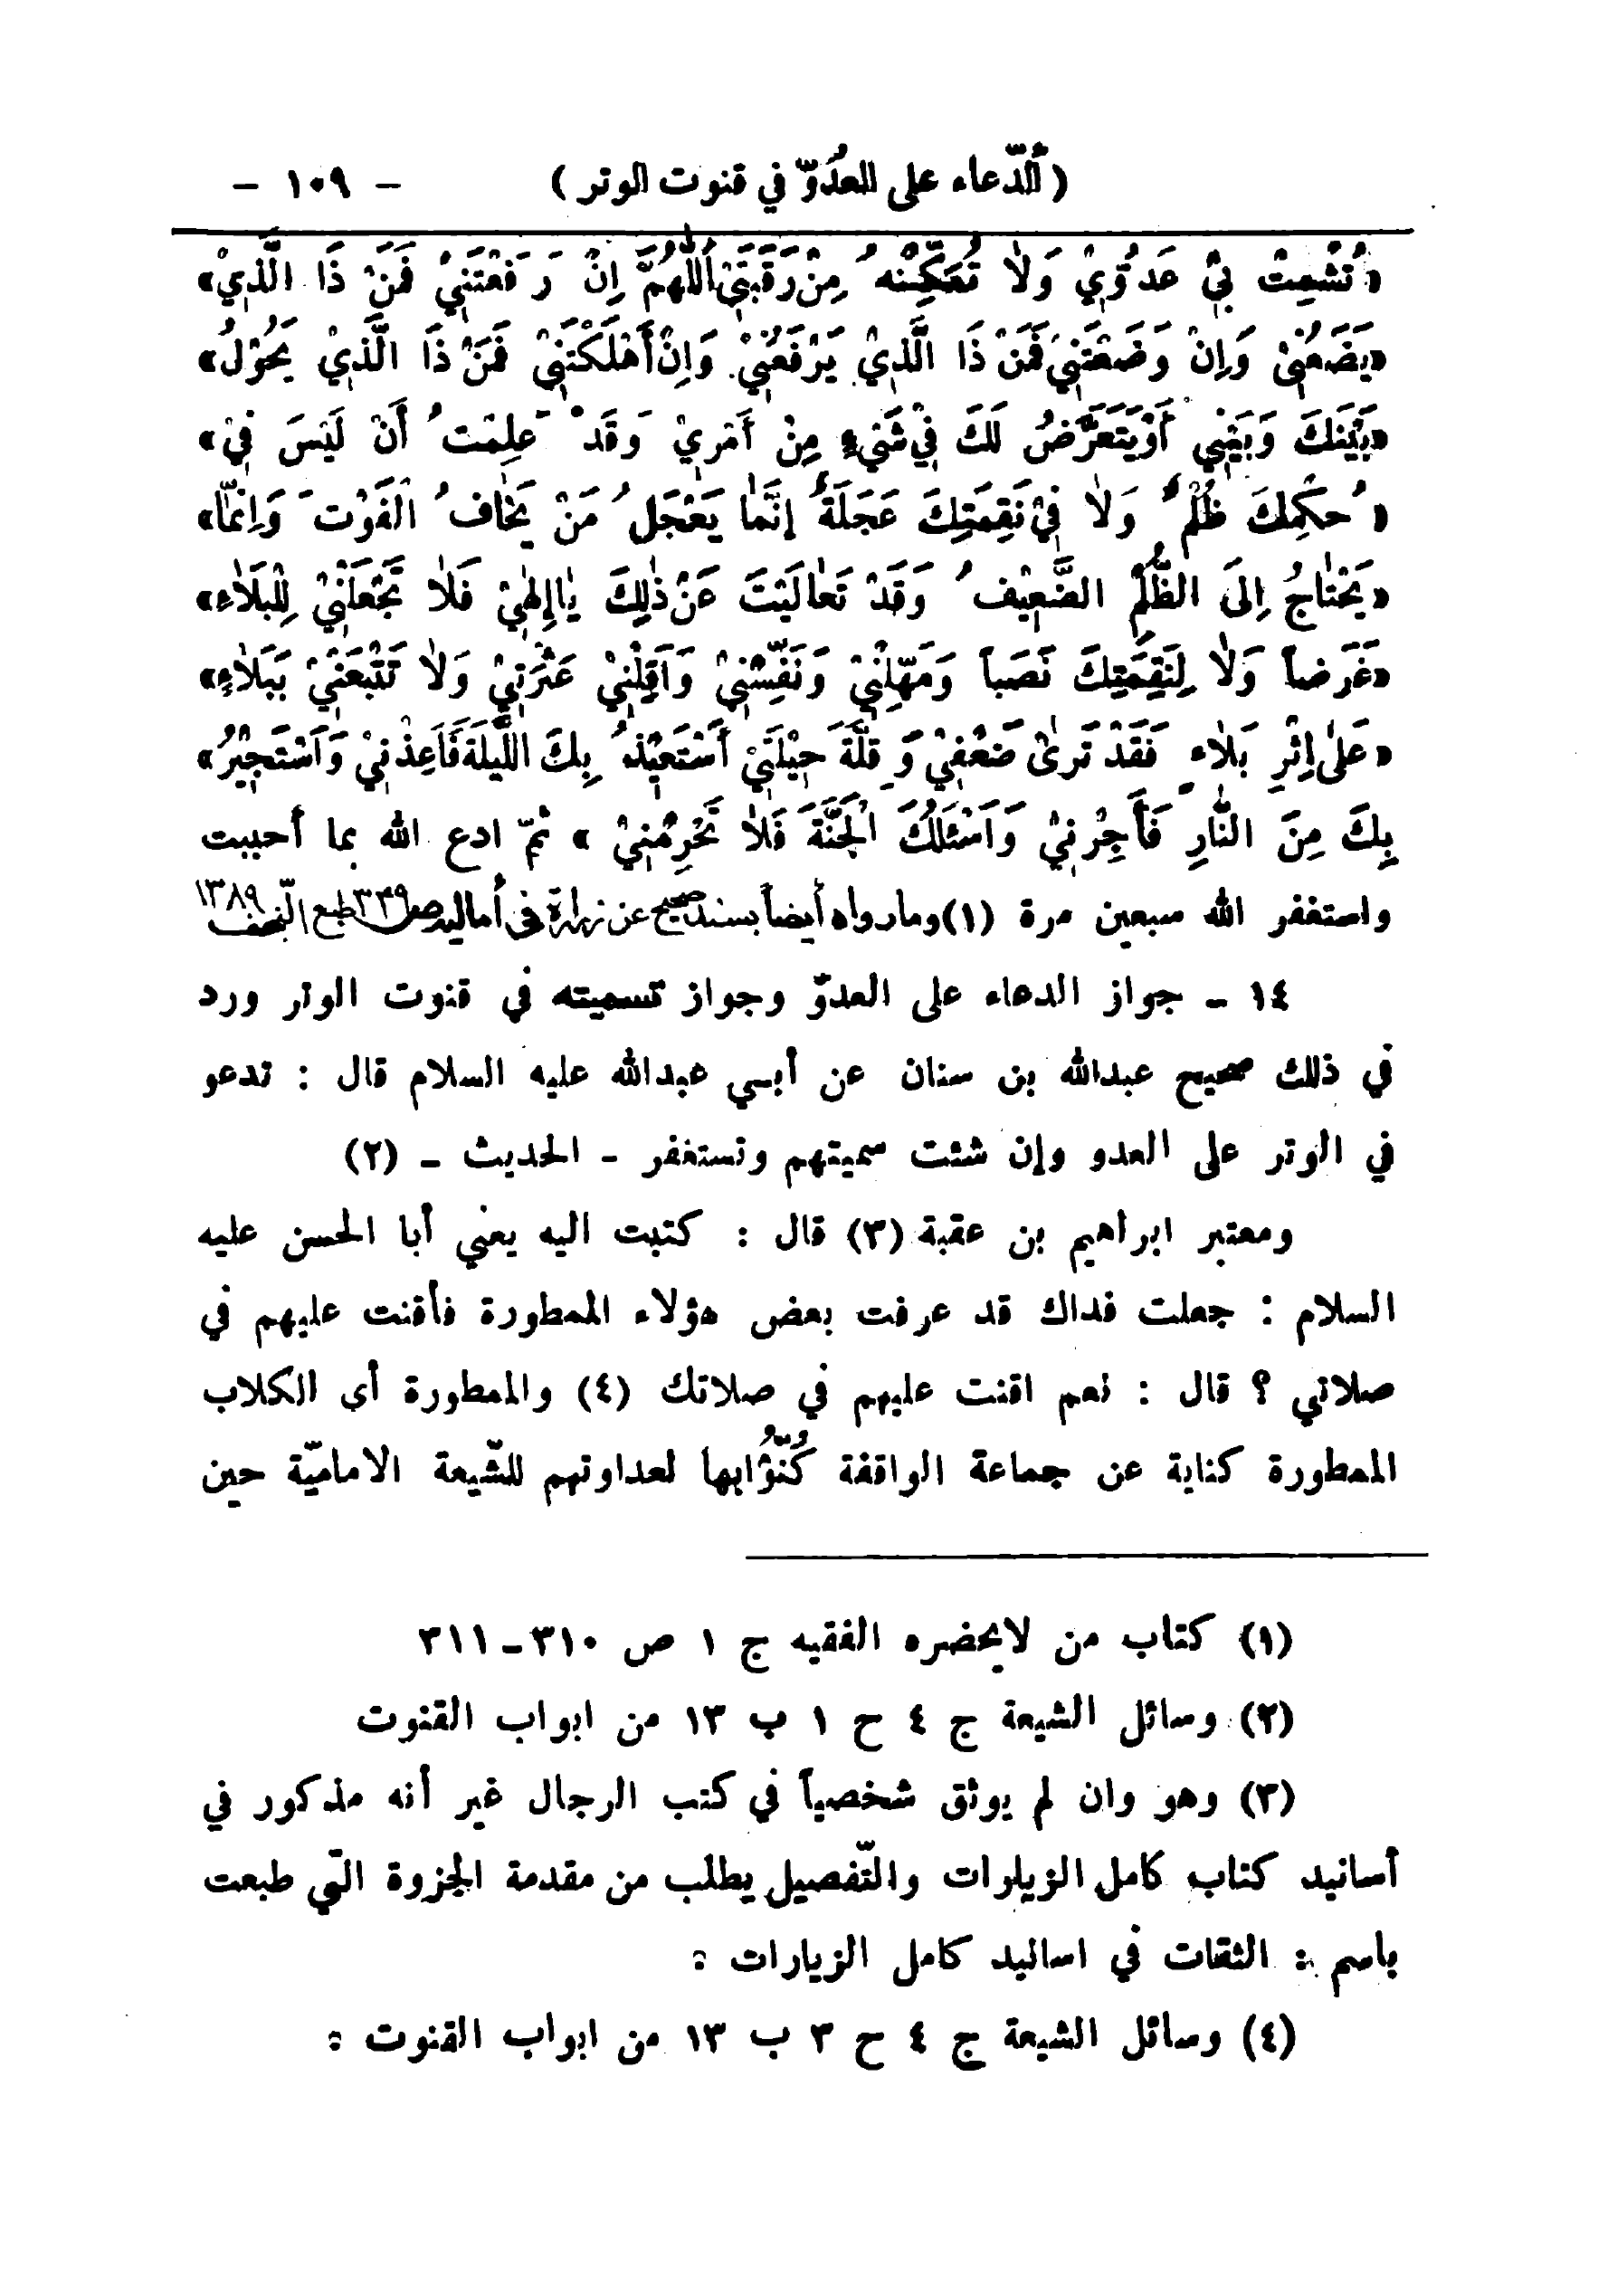 (اَلدّعاء على العدُوّ في قنوت الوتر) - ١٠٩ -
«تُشْمِتْ بِيْ عَدُوّيْ وَلاٰ تُمَكِّنْهُ مِنْ رَقَبَتِيْ اَللّٰهُمَّ اِنْ رَفَعْتَنِيْ فَمَنْ ذَا الَّذِيْ»
«يَضَعُنِيْ وَاِنْ وَضَعْتَنِيْ فَمَنْ ذَا الَّذِيْ يَرْفَعُنِيْ وَاِنْ أَهْلَكْتَنِيْ فَمَنْ ذَا الَّذِيْ يَحُوْلُ»
«بَيْنَكَ وَبَيْنِيْ أَوْيَتَعَرَّضُ لَكَ فِيْ شَيْءٍ مِنْ أَمْرِيْ وَقَدْ عَلِمْتُ أَنْ لَيْسَ فِيْ»
«حُكْمِكَ ظُلْمٌ وَلاٰ فِيْ نَقِمَتِكَ عَجَلَةٌ إنَّمٰا يَعْجَلُ مَنْ يَخٰافُ الْفَوْتَ وَاِنَّمٰا»
«يَحْتٰاجُ اِلىَ الظُّلْمِ الضَّعِيْفُ وَقَدْ تَعٰالَيْتَ عَنْ ذٰلِكَ يٰااِلٰهِيْ فَلاٰ تَجْعَلْنِيْ لِلْبَلاٰءِ»
«غَرَضاً وَلاٰ لِنَقِمَتِكَ نَصَباً وَمَهِّلْنِيْ وَنَفِّسْنِيْ وَاَقِلْنِيْ عَثْرَتِيْ وَلاٰ تَتْبَعْنِيْ بِبَلاٰءٍ»
«عَلىٰ اِثْرِ بَلاٰءٍ فَقَدْ تَرىٰ ضَعْفِيْ وَقِلَّةَ حِيْلَتِيْ أَسْتَعِيْذُ بِكَ اللَّيْلَةَ فَاَعِذْنِيْ وَاَسْتَجِيْرُ»
بِكَ مِنَ النّٰارِ فَأَجِرْنِيْ وَاَسْئَلُكَ الْجَنَّةَ فَلاٰ تَحْرِمْنِيْ » ثمّ ادع الله بما أحببت
واستغفر الله سبعين مرة (١) ومارواه أيضاً بسند صحيح عن زرارة في أماليه ص ٣٤٩ طبع النّجف ١٣٨٩
١٤ - جواز الدعاء على العدوّ وجواز تسميته في قنوت الوتر ورد
في ذلك صحيح عبدالله بن سنان عن أبي عبدالله عليه السلام قال : تدعو
في الوتر على العدو وإن شئت سميتهم وتستغفر - الحديث - (٢)
ومعتبر ابراهيم بن عقبة (٣) قال : كتبت اليه يعني أبا الحسن عليه
السلام : جعلت فداك قد عرفت بعض هؤلاء الممطورة فأقنت عليهم في
صلاتي ؟ قال : نعم اقنت عليهم في صلاتك (٤) والممطورة أي الكلاب
الممطورة كناية عن جماعة الواقفة كُنّوُابها لعداوتهم للشّيعة الاماميّة حين
(١) كتاب من لايحضره الفقيه ج ١ ص ٣١٠-٣١١
(٢) وسائل الشيعة ج ٤ ح ١ ب ١٣ من ابواب القنوت
(٣) وهو وان لم يوثق شخصياً في كتب الرجال غير أنه مذكور في
أسانيد كتاب كامل الزيارات والتّفصيل يطلب من مقدمة الجزوة التي طبعت
باسم : الثقات في اسانيد كامل الزيارات :
(٤) وسائل الشيعة ج ٤ ح ٣ ب ١٣ من ابواب القنوت :